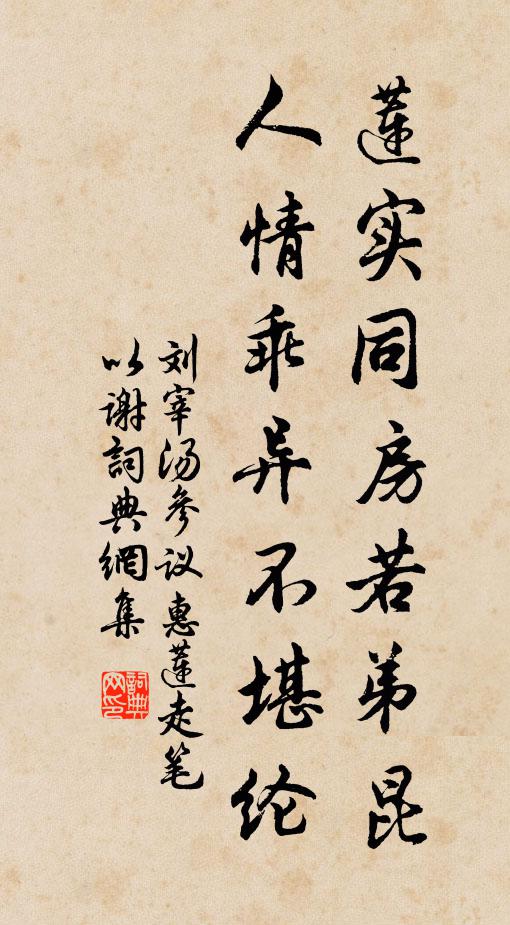 莲实同房若弟昆
人情乖异不堪纶
刘宰汤参议惠莲走笔
以谢詞典網集
詞典网印